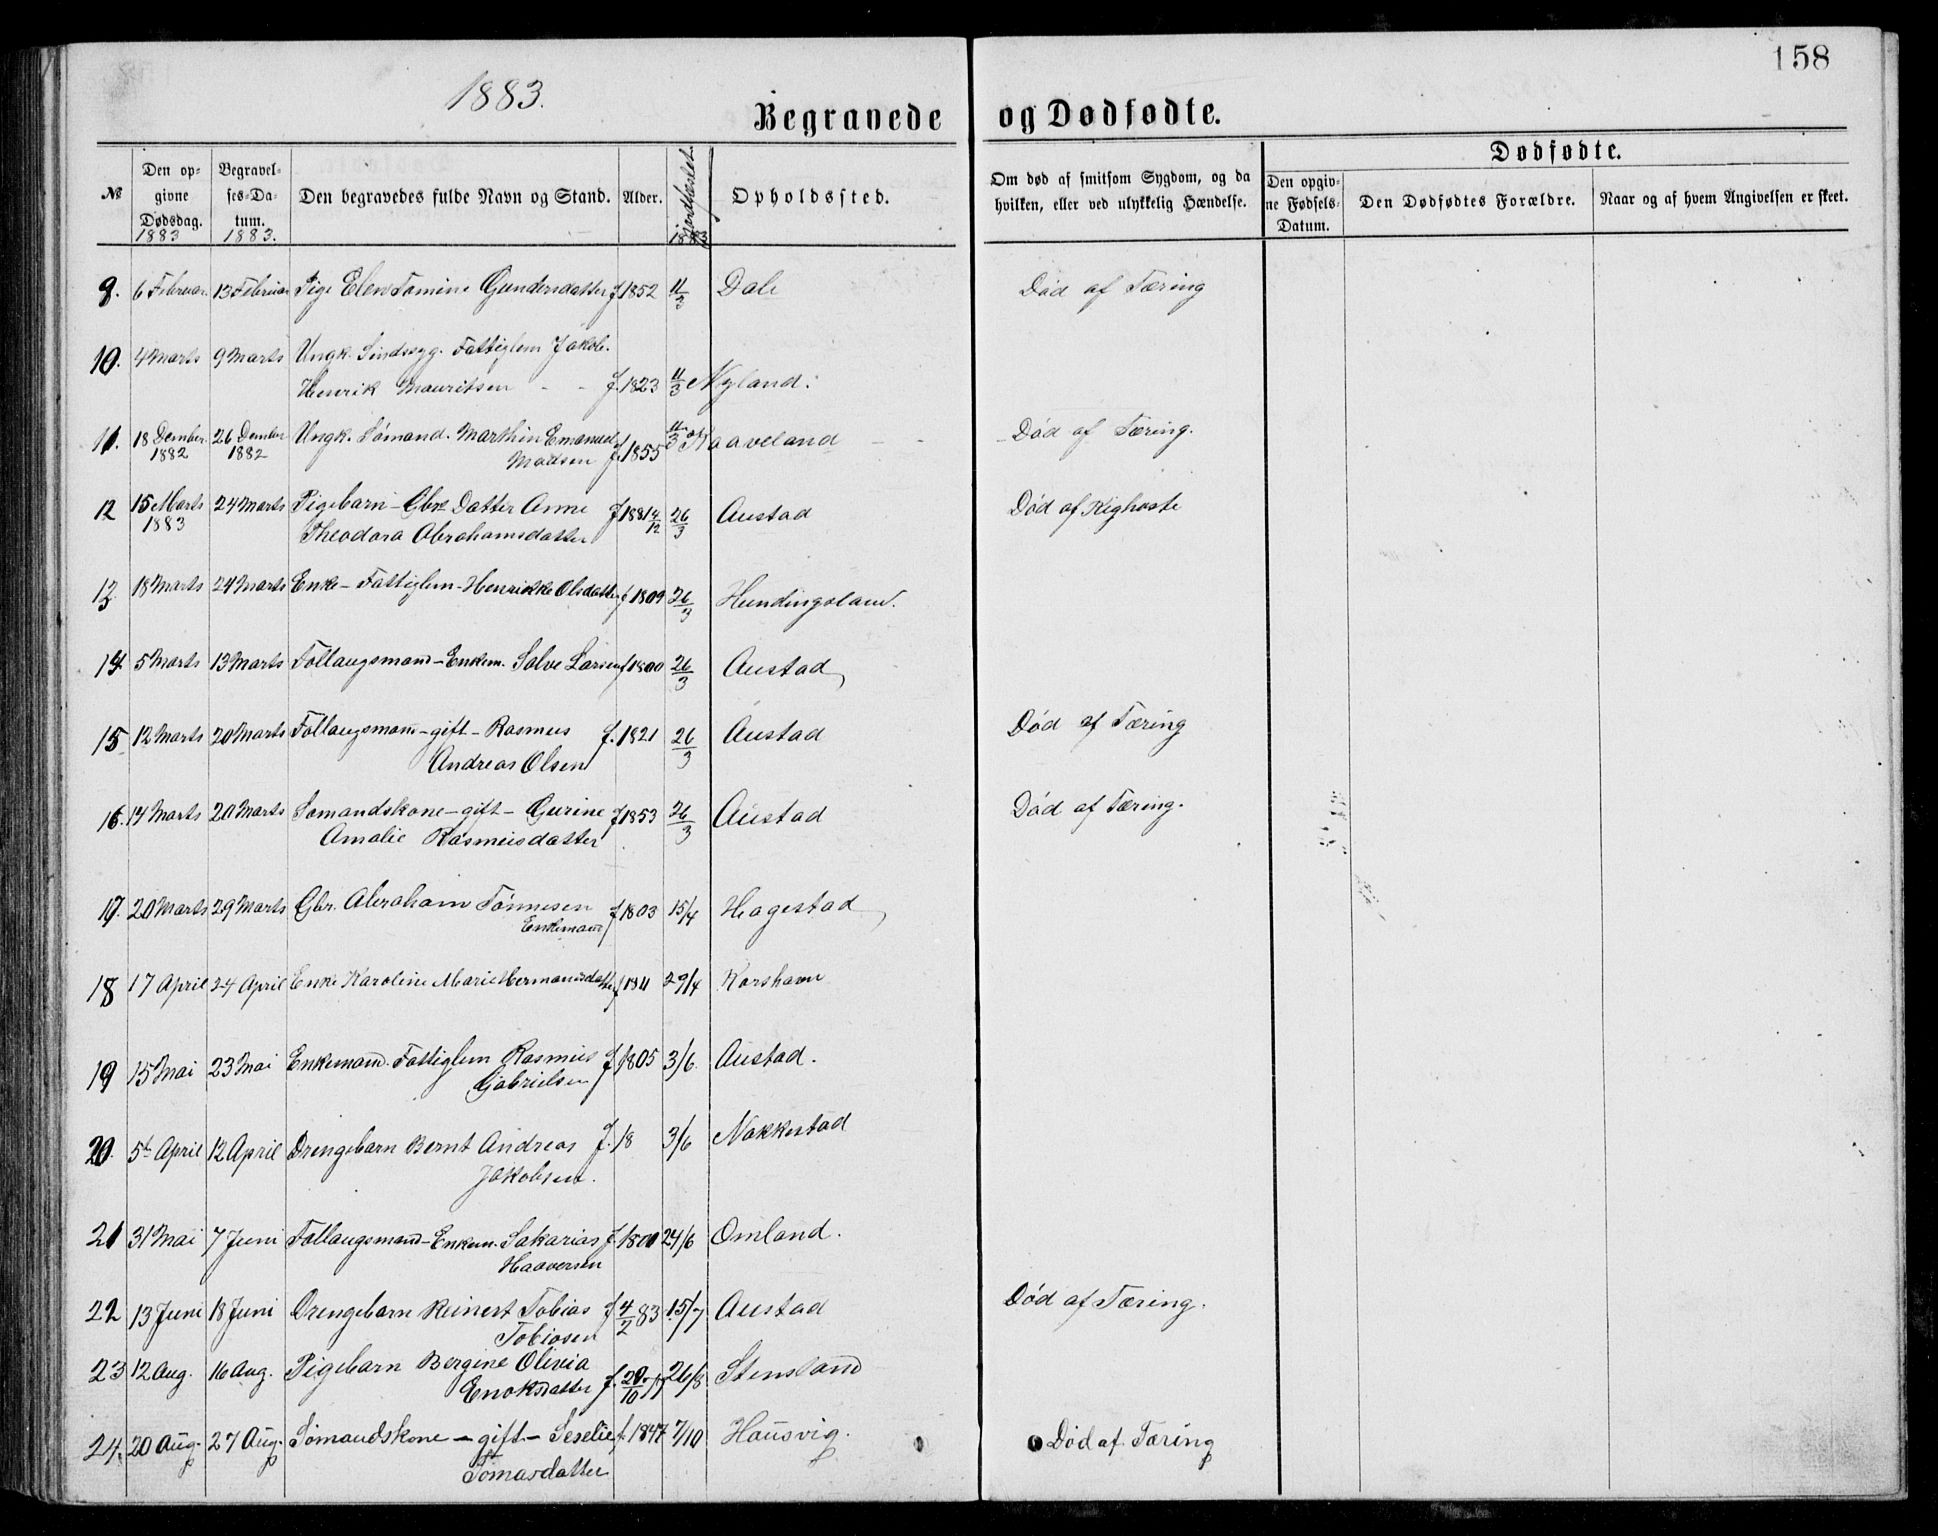 158
1883.
Begravede og Dødfødte.
№ Den opgivne Dødsdag. 1883 Begravelses-Datum. 1883. Den begravedes fulde Navn og Stand. Alder. Jordfæstet. 1883 Opholdssted. Om død af smitsom Sygdom, og da hvilken, eller ved ulykkelig Hændelse. Dødfødte. Den opgivne Fødsels-Datum. Den Dødfødtes Forældre. Naar og af hvem Angivelsen er skeet.
9. 6 Februar 13 Februar Pige Elen Tomine Gundersdatter f 1852 11/3 Dale Død af Tæring
10. 4 Marts 9 Marts Ungk. Sindssyg. Fattiglem Jakob.
Henrik Mauritsen - - f. 1823 11/3 Nyland.
11. 18 Dember 26 Dember Ungk. Sømand. Marthin Emanuel Haaveland Død af Tæring.
1882 1882 Madsen f. 1855 11/3
12 15 Marts 24 Marts Pigebarn - Gbr. Datter Anne f 1881 4/12 26/3 Austad Død af Kighoste
1883 Theodora Abrahamsdatter
13 18 Marts 24 Marts Enke - Fattiglem - Henrikke Olsdatter f 1809 26/3 Hundingsland.
14. 5 Marts 13 Marts Follaugsmand - Enkem. Salve Larsen f 1800 26/3 Austad
15 12 Marts 20 Marts Follaugsmand - gift - Rasmus f. 1821 26/3 Austad Død af Tæring
Andreas Olsen
16. 14 Marts 20 Marts Sømandskone - gift - Gurine f 1853 26/3 Austad Død af Tæring.
Amalie Rasmusdatter
17. 20 Marts 29 Marts Gbr. Abraham Tønnesen f 1803 15/4 Hagestad
Enkemand
18 17 April 24 April Enke Karoline Marie Hermansdatter f 1811 29/4 Korshavn
19 15 Mai 23 Mai Enkemand. Fattiglem Rasmus f 1805 3/6 Austad.
Gabrielsen
20. 5t April 12 April Drengebarn Bernt Andreas f. 18 3/6 Nakkestad
Jakobsen.
21 31 Mai 7 Juni Follaugsmand - Enkem. Sakarias f 1800 24/6 Omland.
Haaversen
22 13 Juni 18 Juni Drengebarn Reinert Tobias f 4/2 83 15/7 Austad Død af Tæring.
Tobiasen
23 12 Aug. 16 Aug. Pigebarn Bergine Olivia
Enoksdatter f. 26/8 Stensland
24. 20 Aug. 27 Aug. Sømandskone - gift - Seselie f. 1847 7/10 Hausvig. Død af Tæring
Tomasdatter